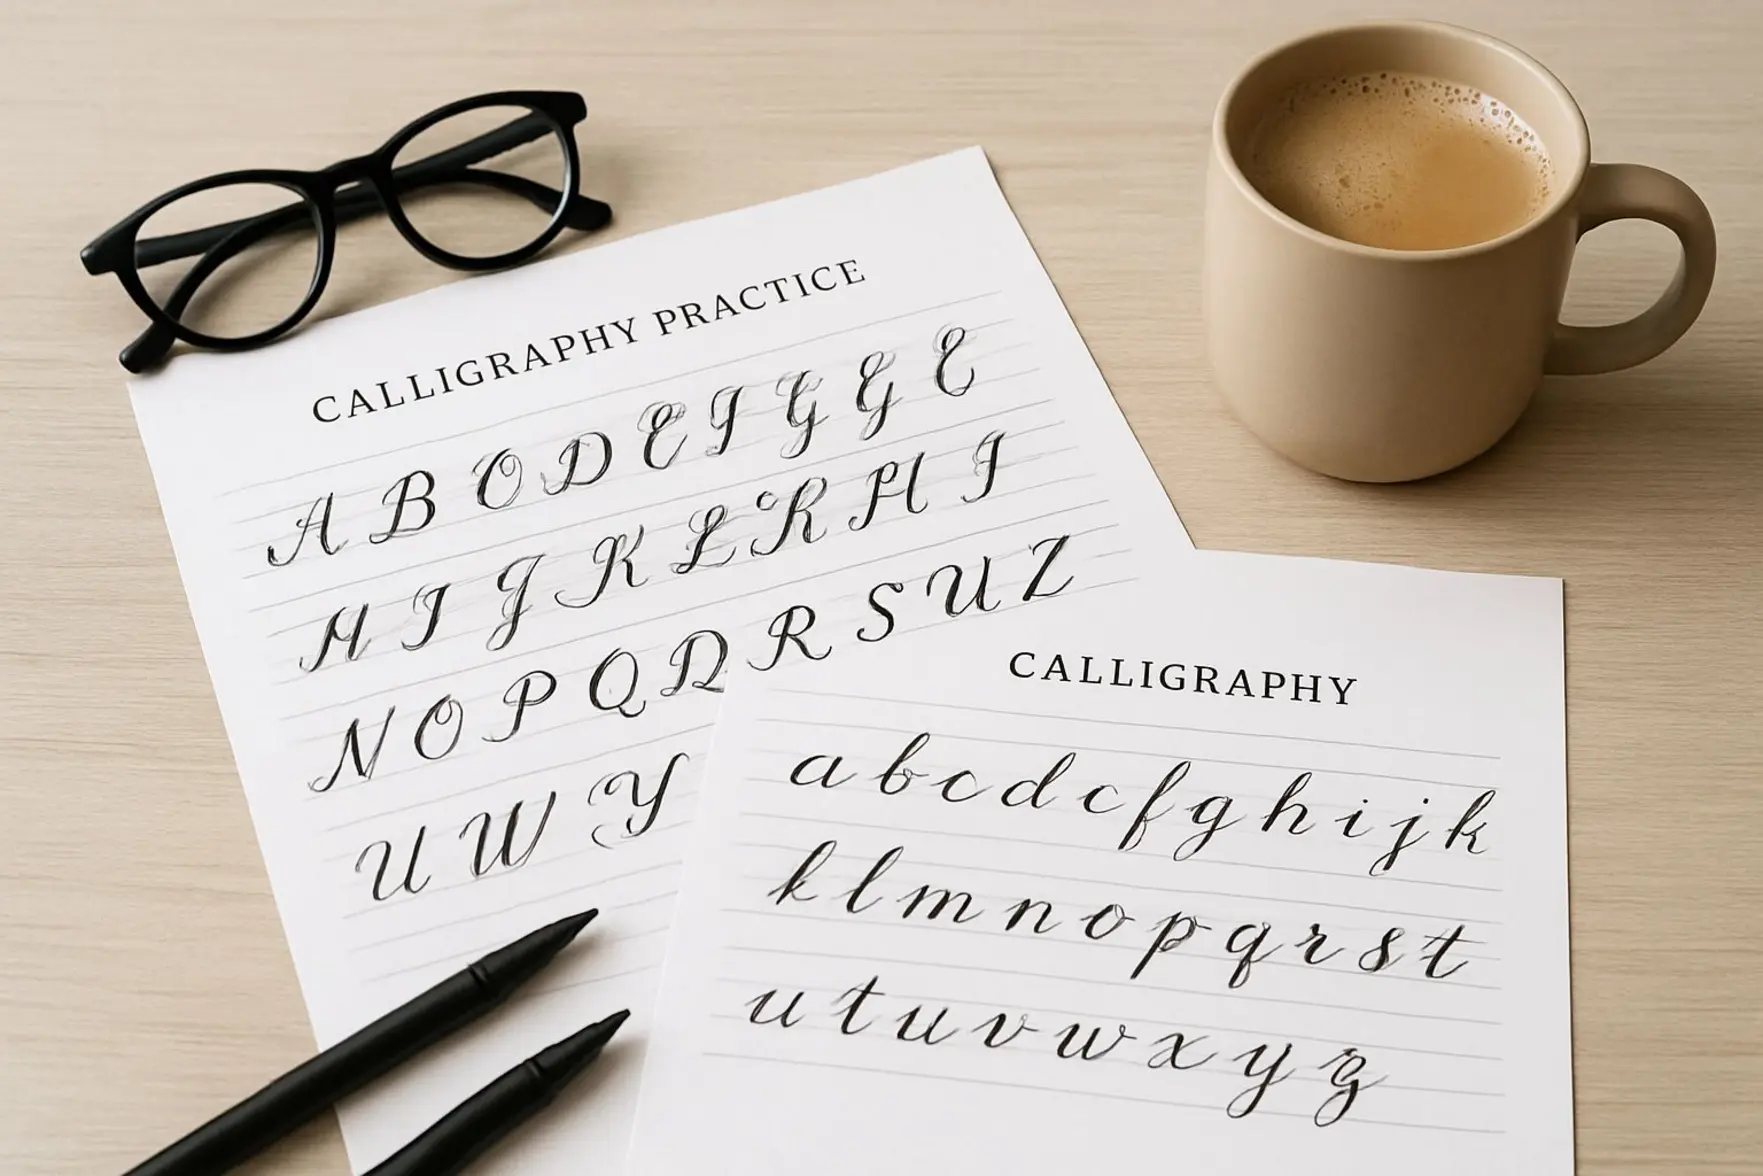 CALLIGRAPHY PRACTICE
A B O D E I G G E
H I J K L R H I
N O P Q D R S U Z
U W Y
CALLIGRAPHY
a b c d c f g h i j k
k l m n o p q r s t
u t u v w x y z